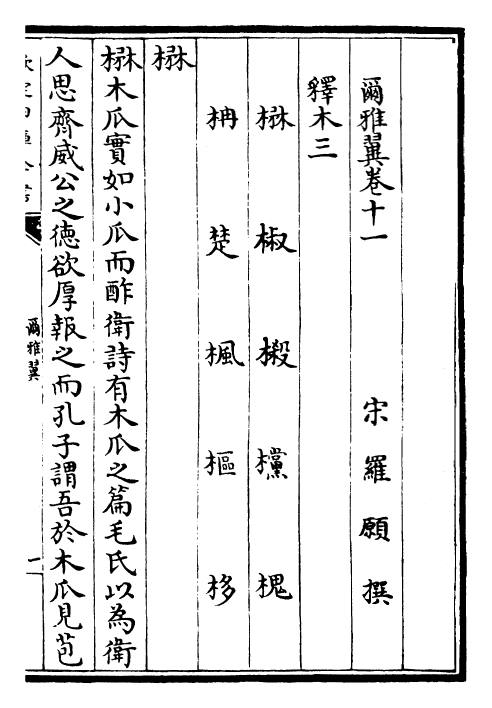 爾雅翼卷十一
宋羅願撰
釋木三
楙 椒 榝 欓 槐
柟 楚 楓 樞 栘
楙
楙木瓜實如小瓜而酢衛詩有木瓜之篇毛氏以為衛
人思齊威公之德欲厚報之而孔子謂吾於木瓜見苞
爾雅翼
一